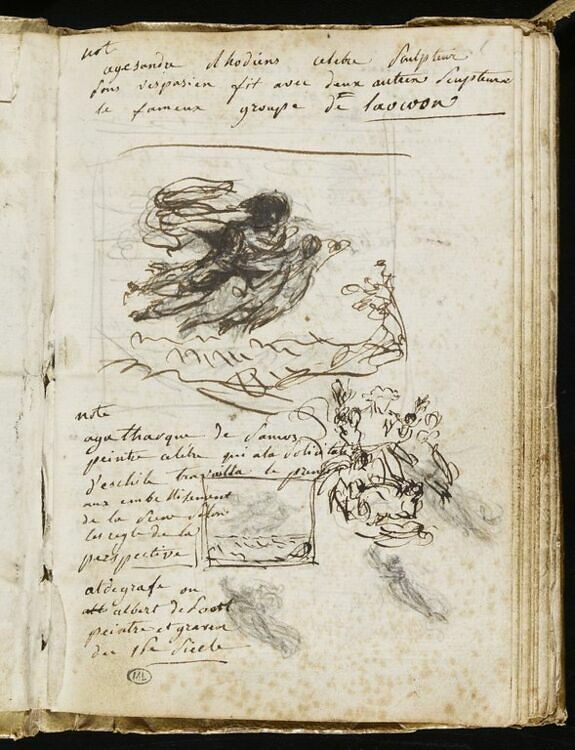 not
agesandre Rhodiens celebre Sculpteur
sous vespasien fit avec deux autres Sculpteurs
le fameux groupe de laocoon
note
agatharque de Samos
peintre celebre qui a la Sollicitation
d'eschile travailla le premier
aux embellissement
de la Scene selon
les regle de la
perspective
aldegrafe ou
albert de
peintre et graveur
du 16e Siecle
ML